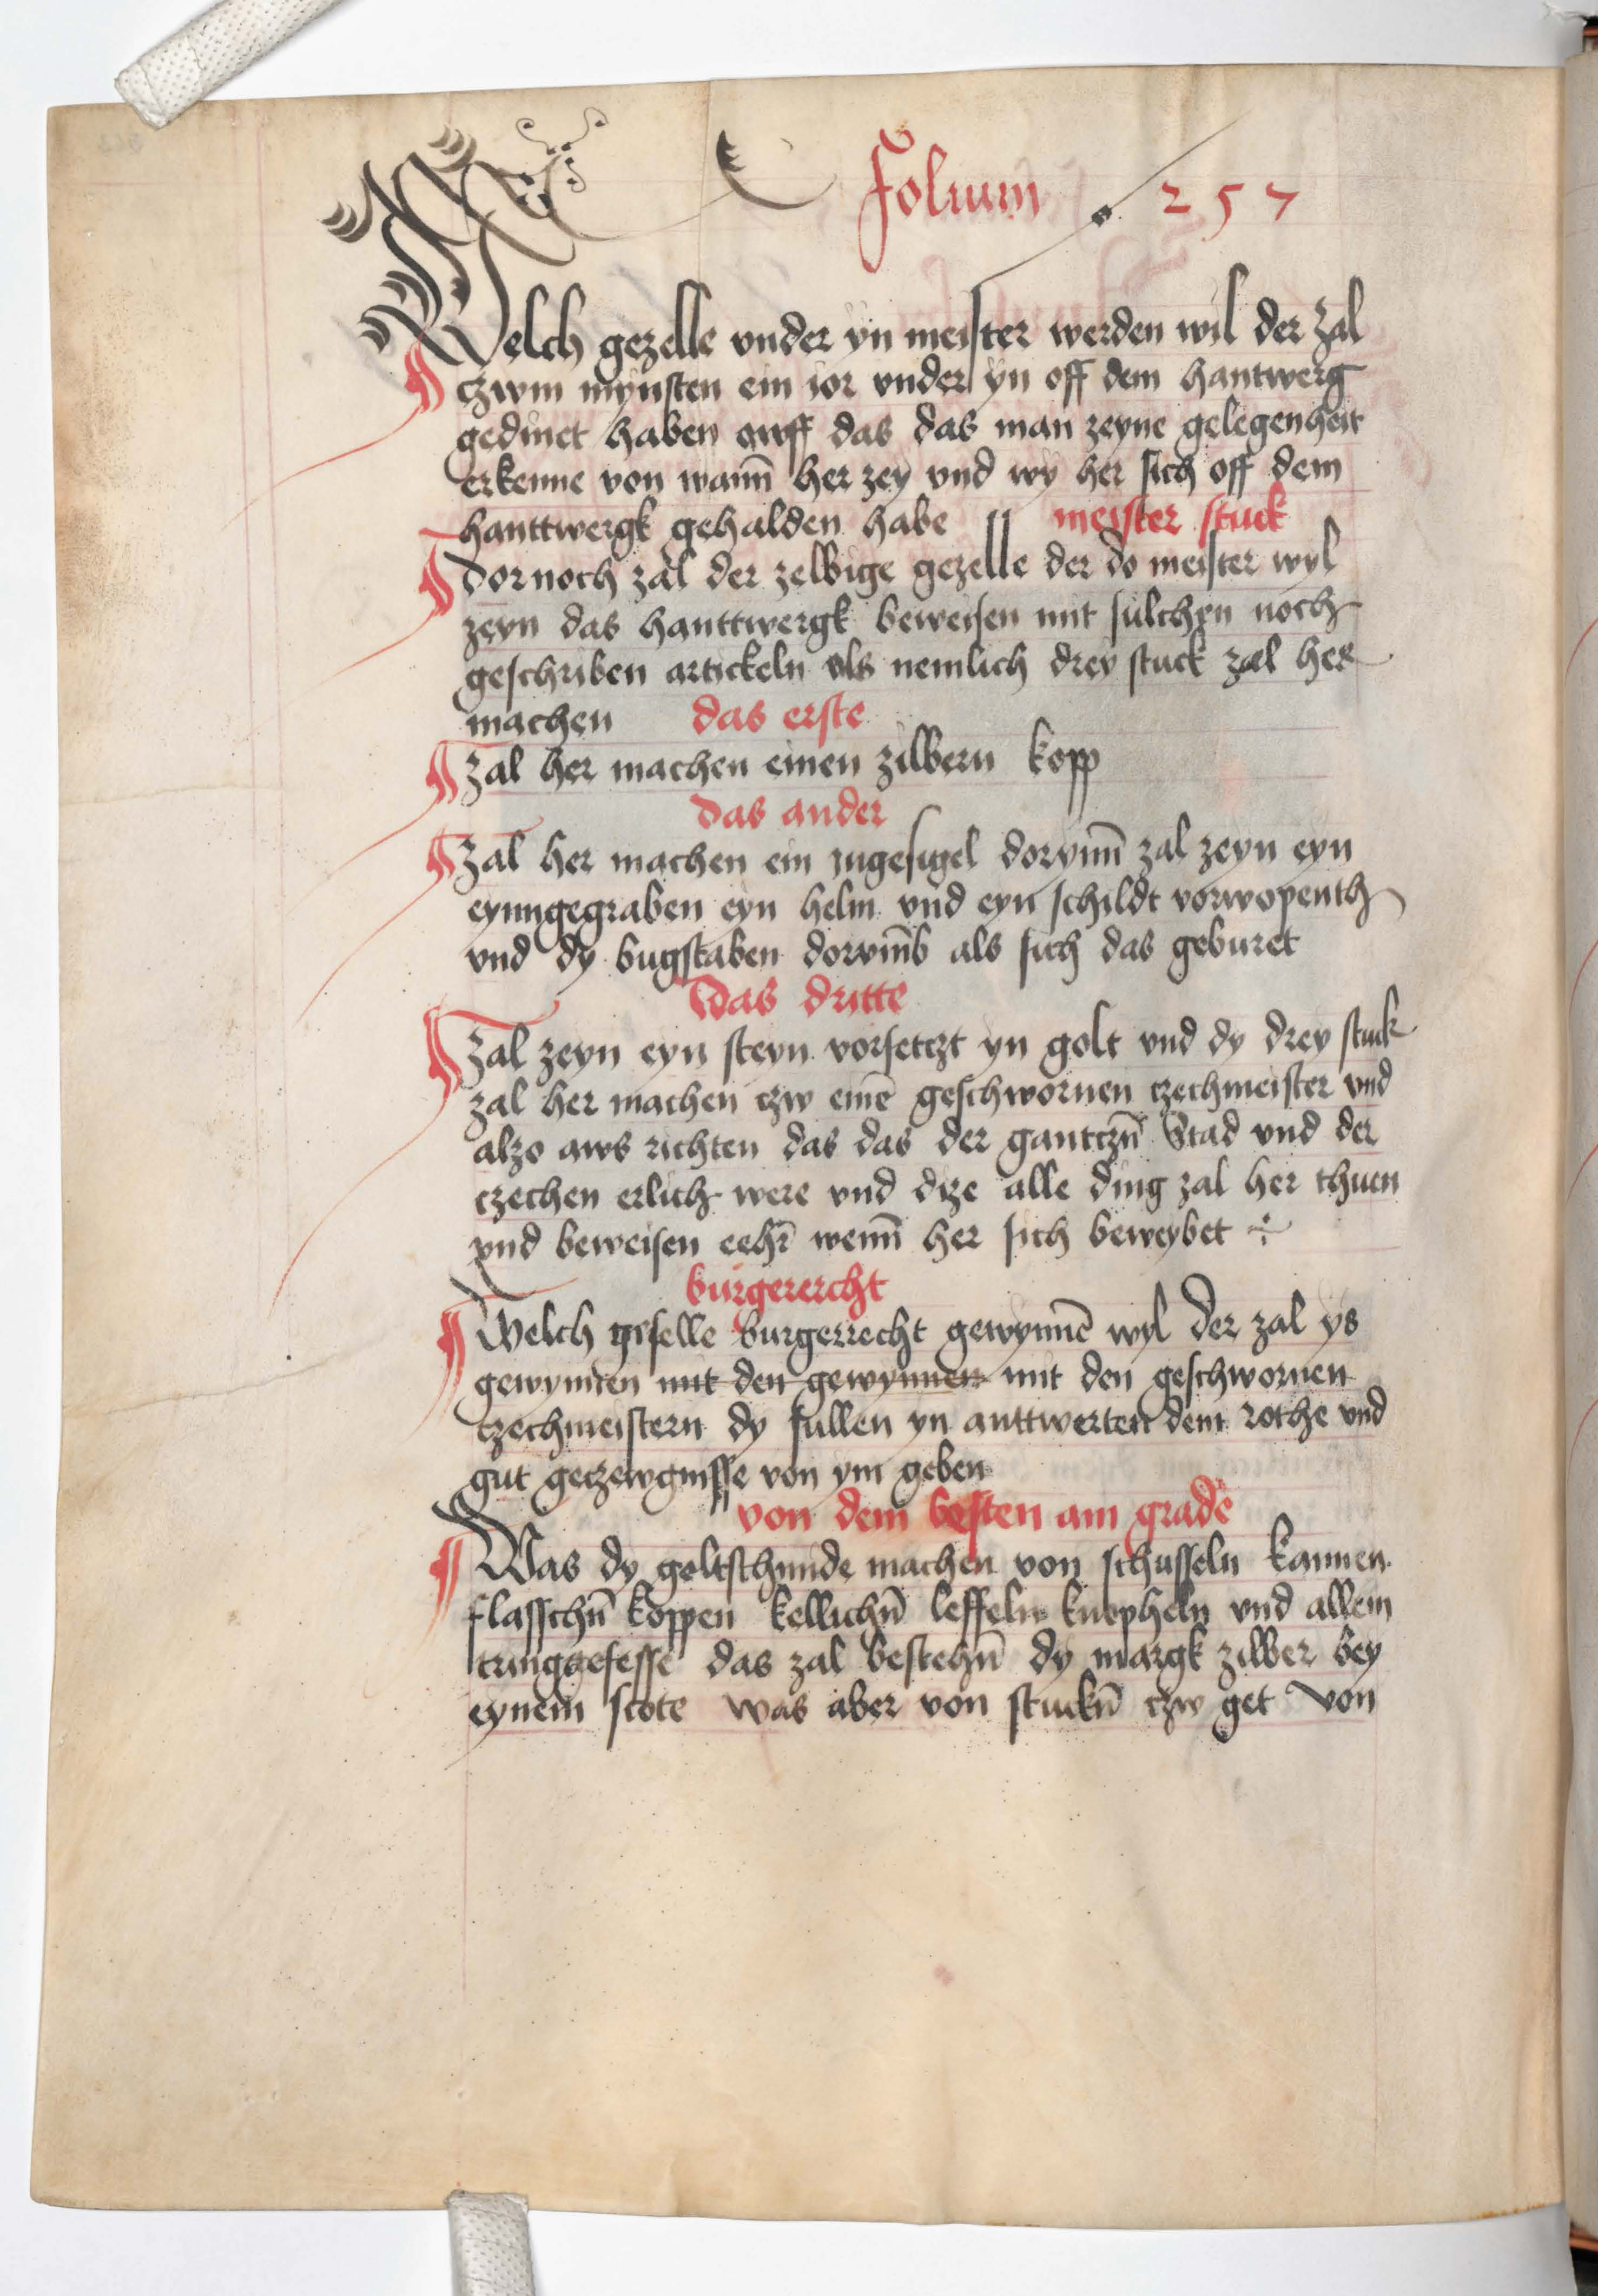 Folium 257
Welch gezelle vnder yn meister werden wil der zal
czwm mynsten ein ior vnder yn off dem hantwerg
gedinet haben awff das das man zeyne gelegenheit
erkenne von wann̄ her zey vnd wy her sich off dem
hanttwergk gehalden habe meister stuck
Dornoch zal der zelbige gezelle der do meister wyl
zeyn das hanttwergk beweisen mit sulchen noch
geschriben artickeln als nemlich drey stuck zal her
machen das erste
Zal her machen einen zilbern kopp
das ander
Zal her machen ein jngesigel dorynn̄ zal zeyn eyn
eynngegraben eyn helm vnd eyn schildt vorwopenth
vnd dy bugstaben dorvmb als sich das geburet
Das dritte
Zal zeyn eyn steyn vorsetczt yn golt vnd dy drey stuck
zal her machen czw einē geschwornen czechmeister vnd
alzo aws richten das das der gantczn̄ Stad vnd der
czechen erlich were vnd dize alle ding zal her thuen
vnd beweisen eehr̄ wenn̄ her sich beweybet
burgerercht
Welch geselle burgerrecht gewynnē wyl der zal ys
gewynnen mit den gewynnen mit den geschwornen
czechmeistern dy sullen yn anttwerten dem rothe vnd
gut geczewgnisse von ym geben
von dem besten am grade
Was dy goltschmide machen von schusseln kannen
flasschn̄ koppen kellichn̄ leffeln knopheln vnd allem
tringgefesse das zal bestehn̄ dy margk zilber bey
eynem scote was aber von stuckn̄ czw get von